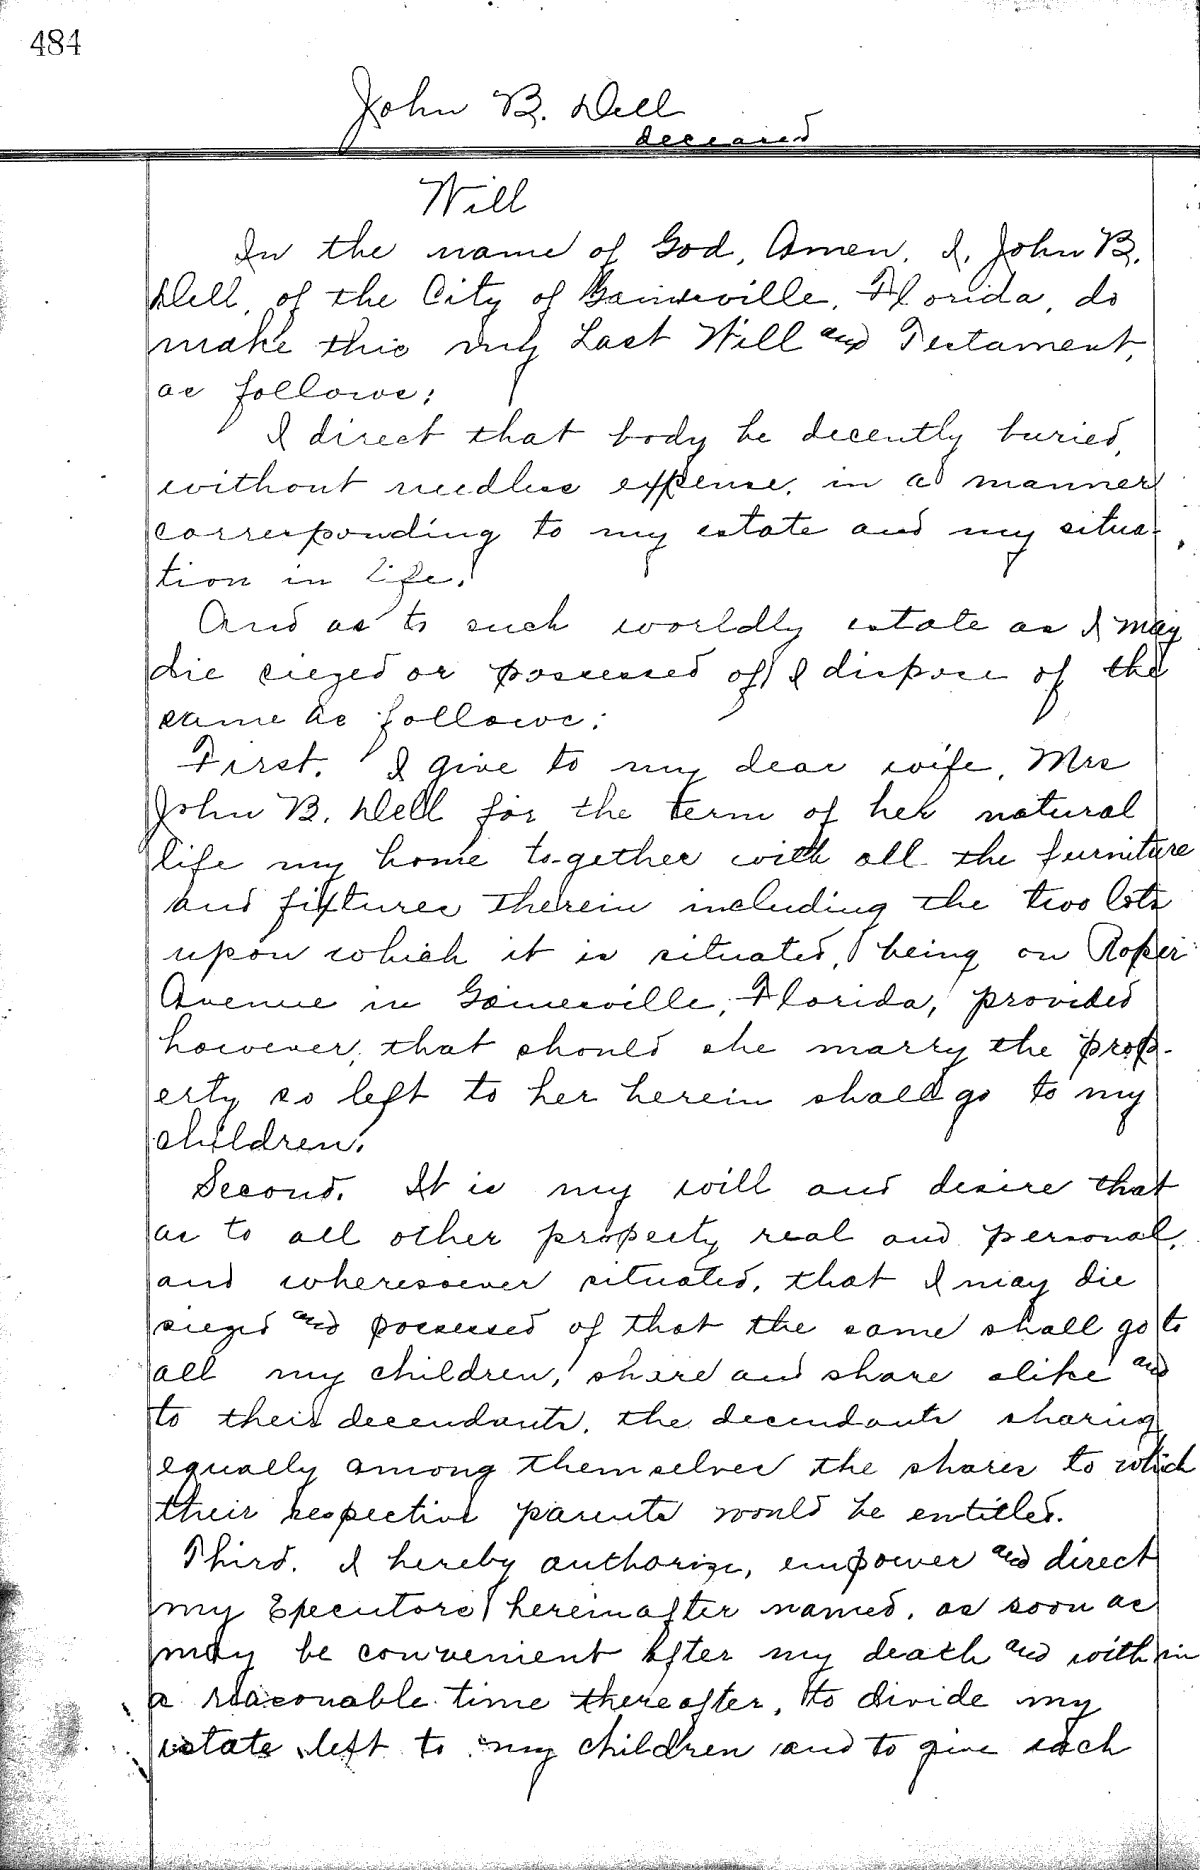 484
John B. Dell
deceased
Will
In the name of God, Amen. I, John B.
Dell, of the City of Gainesville, Florida, do
make this my Last Will and Testament,
as follows:
I direct that body be decently buried,
without needless expense, in a manner
corresponding to my estate and my situa-
tion in life.
And as to such worldly estate as I may
die siezed or possessed of, I dispose of the
same as follows:
First. I give to my dear wife, Mrs
John B. Dell for the term of her natural
life my home together with all the furniture
and fixtures therein including the two lots
upon which it is situated, being on Roper
Avenue in Gainesville, Florida, provided
however, that should she marry the prop-
erty so left to her herein shall go to my
children.
Second. It is my will and desire that
as to all other property real and personal,
and wheresoever situated, that I may die
siezed and possessed of that the same shall go to
all my children, share and share alike and
to their decendants, the decendants sharing
equally among themselves the shares to which
their respective parents would be entitled.
Third. I hereby authorize, empower and direct
my Executors hereinafter named, as soon as
may be convenient after my death and within
a reasonable time thereafter, to divide my
estate left to my children and to give each